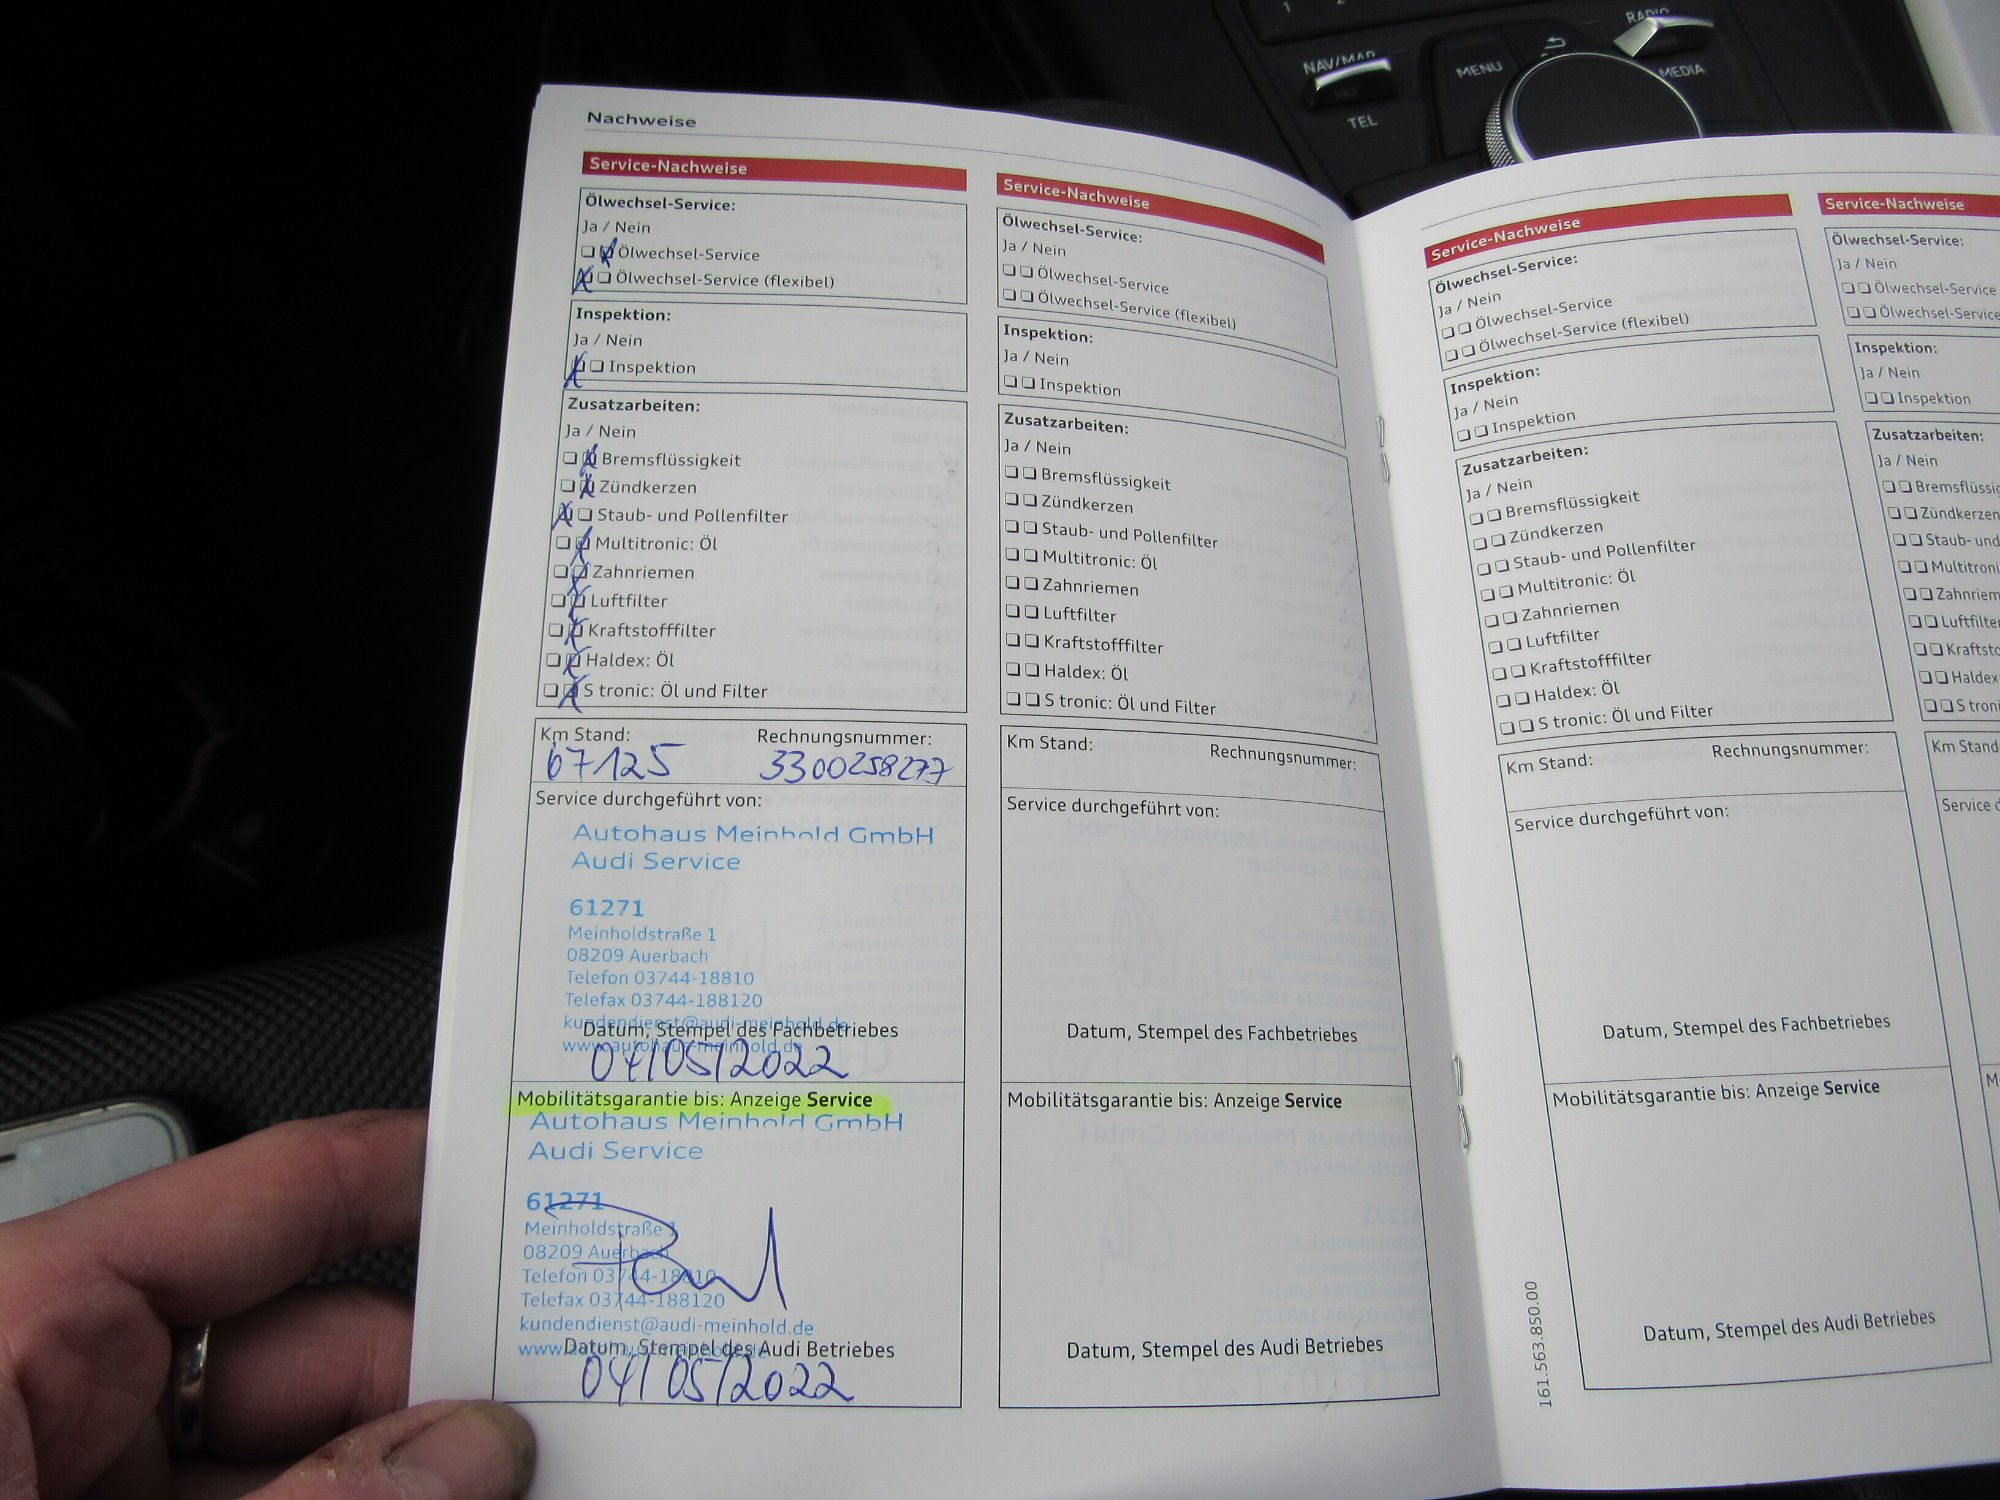 NAV/MAP
TEL
MENU
RADIO
MEDIA
1
2
Nachweise
Service-Nachweise
Ölwechsel-Service:
Ja / Nein
Ölwechsel-Service
Ölwechsel-Service (flexibel)
Inspektion:
Ja / Nein
Inspektion
Zusatzarbeiten:
Ja / Nein
Bremsflüssigkeit
Zündkerzen
Staub- und Pollenfilter
Multitronic: Öl
Zahnriemen
Luftfilter
Kraftstofffilter
Haldex: Öl
S tronic: Öl und Filter
Km Stand:
67125
Rechnungsnummer:
3300258277
Service durchgeführt von:
Autohaus Meinhold GmbH
Audi Service
61271
Meinholdstraße 1
08209 Auerbach
Telefon 03744-18810
Telefax 03744-188120
kundendienst@audi-meinhold.de
Datum, Stempel des Fachbetriebes
www.autohaus-meinhold.de
04/05/2022
Mobilitätsgarantie bis: Anzeige Service
Autohaus Meinhold GmbH
Audi Service
61271
Meinholdstraße 1
08209 Auerbach
Telefon 03744-18810
Telefax 03744-188120
kundendienst@audi-meinhold.de
Datum, Stempel des Audi Betriebes
www.autohaus-meinhold.de
04/05/2022
Service-Nachweise
Ölwechsel-Service:
Ja / Nein
Ölwechsel-Service
Ölwechsel-Service (flexibel)
Inspektion:
Ja / Nein
Inspektion
Zusatzarbeiten:
Ja / Nein
Bremsflüssigkeit
Zündkerzen
Staub- und Pollenfilter
Multitronic: Öl
Zahnriemen
Luftfilter
Kraftstofffilter
Haldex: Öl
S tronic: Öl und Filter
Km Stand:
Rechnungsnummer:
Service durchgeführt von:
Datum, Stempel des Fachbetriebes
Mobilitätsgarantie bis: Anzeige Service
Datum, Stempel des Audi Betriebes
Service-Nachweise
Ölwechsel-Service:
Ja / Nein
Ölwechsel-Service
Ölwechsel-Service (flexibel)
Inspektion:
Ja / Nein
Inspektion
Zusatzarbeiten:
Ja / Nein
Bremsflüssigkeit
Zündkerzen
Staub- und Pollenfilter
Multitronic: Öl
Zahnriemen
Luftfilter
Kraftstofffilter
Haldex: Öl
S tronic: Öl und Filter
Km Stand:
Rechnungsnummer:
Service durchgeführt von:
Datum, Stempel des Fachbetriebes
Mobilitätsgarantie bis: Anzeige Service
Datum, Stempel des Audi Betriebes
161.563.850.00
Service-Nachweise
Ölwechsel-Service:
Ja / Nein
Ölwechsel-Service
Ölwechsel-Service
Inspektion:
Ja / Nein
Inspektion
Zusatzarbeiten:
Ja / Nein
Bremsflüssig
Zündkerzen
Staub- und
Multitroni
Zahnriem
Luftfilter
Kraftsto
Haldex
S troni
Km Stand
Service d
M